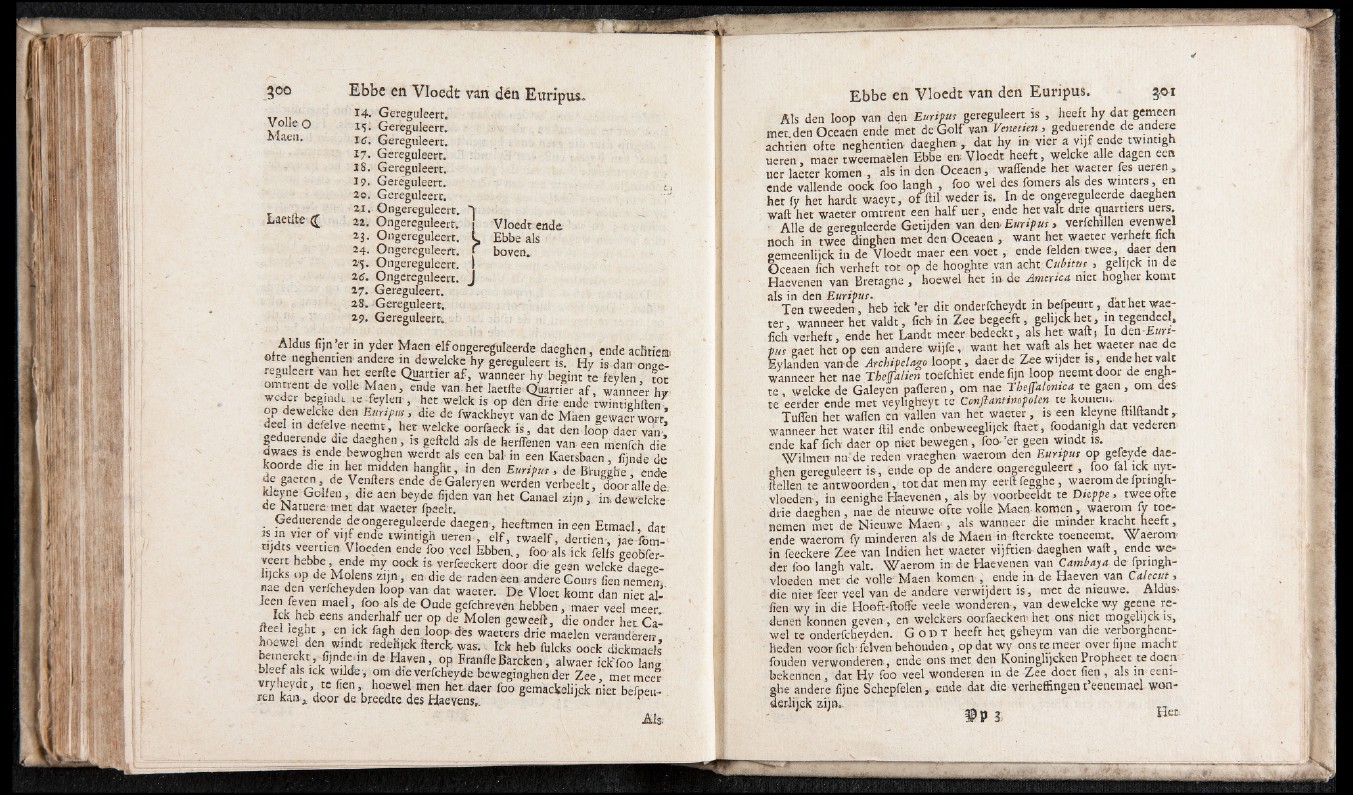 300 Ebbe en Vloedt van den Euripus.
14. Gereguleert.
Volle O 15. Gereguleert.
Maen. 16. Gereguleert.
17. Gereguleert.
18. Gereguleert.
19. Gereguleert.
20. Gereguleert.
21. Ongereguleert.
Laetſte ☾ 22. Ongereguleert. Vloedt ende
23. Ongereguleert. Ebbe als
24. Ongereguleert. boven.
25. Ongereguleert.
26. Ongereguleert.
27. Gereguleert.
28. Gereguleert.
29. Gereguleert.
Aldus ſijn'er in yder Maen elf ongereguleerde daeghen, ende achtien
ofte neghentien andere in dewelcke hy gereguleert is. Hy is dan onge-
reguleert van het eerſte Quartier af, wanneer hy begint te feylen, tot
omtrent de volle Maen, ende van het laetſte Quartier af, wanneer hy
weder begindt te feylen, het welck is op den drie ende twintighſten,
op dewelcke den Euripus, die de ſwackheyt van de Maen gewaer wort,
deel in deſelve neemt, het welcke oorſaeck is, dat den loop daer van,
geduerende die daeghen, is geſteld als de herſſenen van een menſch die
dwaes is ende bewoghen werdt als een bal in een Kaetsbaen, ſijnde de
koorde die in het midden hanght, in den Euripus, de Brugghe, ende
de gaeten, de Venſters ende de Galeryen werden verbeelt, door alle de
kleyne Golfen, die aen beyde ſijden van het Canael zijn, in dewelcke
de Natuere met dat waeter ſpeelt.
Geduerende de ongereguleerde daegen, heeftmen in een Etmael, dat
is in vier of vijf ende twintigh ueren, elf, twaelf, dertien, jae ſom-
tijdts veertien Vloeden ende ſoo veel Ebben, ſoo als ick ſelfs geobſer-
veert hebbe, ende my oock is verſeeckert door die geen welcke daege-
lijcks op de Molens zijn, en die de raden een andere Cours ſien nemen,
nae den verſcheyden loop van dat waeter. De Vloet komt dan niet al-
leen ſeven mael, ſoo als de Oude geſchreven hebben, maer veel meer.
Ick heb eens anderhalf uer op de Molen geweeſt, die onder het Ca-
ſteel leght, en ick ſagh den loop des waeters drie maelen veranderen,
hoewel den windt redelijck ſterck was. Ick heb ſulcks oock dickmaels
bemerckt, ſijnde in de Haven, op Franſſe Barcken, alwaer ick ſoo lang
bleef als ick wilde, om die verſcheyde beweginghen der Zee, met meer
vryheydt, te ſien, hoewel men het daer ſoo gemackelijck niet beſpeu-
ren kan, door de breedte des Haevens.
Als
Ebbe en Vloedt van den Euripus. 301
Als den loop van den Euripus gereguleert is, heeft hy dat gemeen
met den Oceaen ende met de Golf van Venetien, geduerende de andere
achtien ofte neghentien daeghen, dat hy in vier a vijf ende twintigh
ueren, maer tweemaelen Ebbe en Vloedt heeft, welcke alle dagen een
uer laeter komen, als in den Oceaen, waſſende het waeter ſes ueren,
ende vallende oock ſoo langh, ſoo wel des ſomers als des winters, en
het ſy het hardt waeyt, of ſtil weder is. In de ongereguleerde daeghen
waſt het waeter omtrent een half uer, ende het valt drie quartiers uers.
Alle de gereguleerde Getijden van den Euripus, verſchillen evenwel
noch in twee dinghen met den Oceaen, want het waeter verheft ſich
gemeenlijck in de Vloedt maer een voet, ende ſelden twee, daer den
Oceaen ſich verheft tot op de hooghte van acht Cubitus, gelijck in de
Haevenen van Bretagne, hoewel het in de America niet hogher komt
als in den Euripus.
Ten tweeden, heb ick 'er dit onderſcheydt in beſpeurt, dat het wae-
ter, wanneer het valdt, ſich in Zee begeeft, gelijck het, in tegendeel,
ſich verheft, ende het Landt meer bedeckt, als het waſt; In den Euri-
pus gaet het op een andere wijſe, want het waſt als het waeter nae de
Eylanden van de Archipelago loopt, daer de Zee wijder is, ende het valt
wanneer het nae Theſſalien toeſchiet ende ſijn loop neemt door de engh-
te, welcke de Galeyen paſſeren, om nae Theſſalonica te gaen, om des
te eerder ende met veyligheyt te Conſtantinopolen te komen.
Tuſſen het waſſen en vallen van het waeter, is een kleyne ſtilſtandt,
wanneer het water ſtil ende onbeweeglijck ſtaet, ſoodanigh dat vederen
ende kaf ſich daer op niet bewegen, ſoo 'er geen windt is.
Wilmen nu de reden vraeghen waerom den Euripus op geſeyde dae-
ghen gereguleert is, ende op de andere ongereguleert, ſoo ſal ick uyt-
ſtellen te antwoorden, tot dat men my eerſt ſegghe, waerom de ſpringh-
vloeden, in eenighe Haevenen, als by voorbeeldt te Dieppe, twee ofte
drie daeghen, nae de nieuwe ofte volle Maen komen, waerom ſy toe-
nemen met de Nieuwe Maen, als wanneer die minder kracht heeft,
ende waerom ſy minderen als de Maen in ſterckte toeneemt. Waerom
in ſeeckere Zee van Indien het waeter vijftien daeghen waſt, ende we-
der ſoo langh valt. Waerom in de Haevenen van Cambaya de ſpringh-
vloeden met de volle Maen komen, ende in de Haeven van Calecut,
die niet ſeer veel van de andere verwijdert is, met de nieuwe. Aldus
ſien wy in die Hooft-ſtoffe veele wonderen, van dewelcke wy geene re-
denen konnen geven, en welckers oorſaecken het ons niet mogelijck is,
wel te onderſcheyden. GODT heeft het geheym van die verborghent-
heden voor ſich ſelven behouden, op dat wy ons te meer over ſijne macht
ſouden verwonderen, ende ons met den Koninglijcken Propheet te doen
bekennen, dat Hy ſoo veel wonderen in de Zee doet ſien, als in eeni-
ghe andere ſijne Schepſelen, ende dat die verheffingen t'eenemael won-
derlijck zijn.
Pp 3 Het